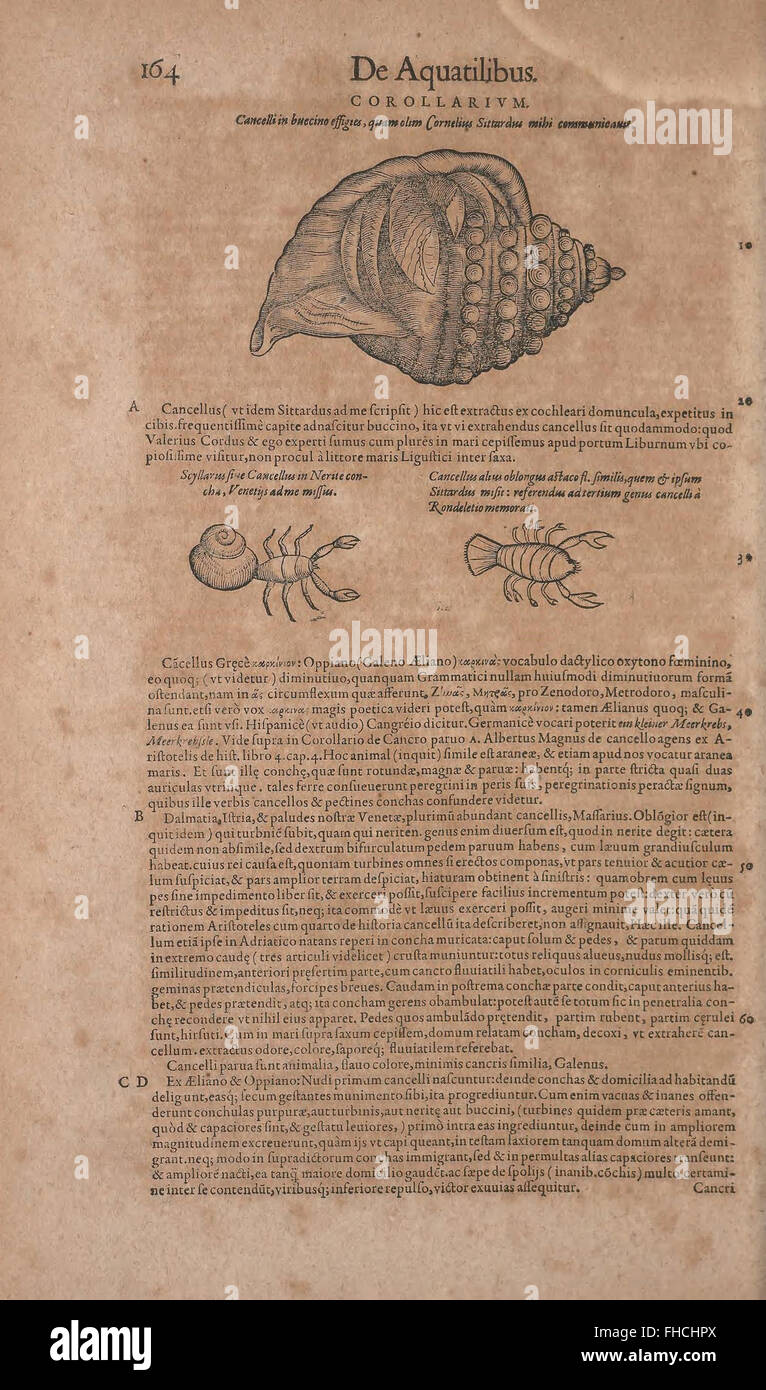 164
De Aquatilibus.
COROLLARIVM.
Cancelli in buccino effigies, quam olim Cornelius Sittardus mihi communicauit.
10
20
A Cancellus ( vt idem Sittardus ad me ſcripſit ) hic eſt extractus ex cochleari domuncula, expetitus in
cibis. frequentiſſimè capite adnaſcitur buccino, ita vt vi extrahendus cancellus ſit quodammodo: quod
Valerius Cordus & ego experti ſumus cum plures in mari cepiſſemus apud portum Liburnum vbi co-
pioſiſſime viſitur, non procul à littore maris Liguſtici inter ſaxa.
Scyllarus ſiue Cancellus in Nerite con-
cha, Venetijs ad me miſſus.
Cancellus alius oblongus aſtaco fl. ſimilis, quem & ipſum
Sittardus miſit: referendus ad tertium genus cancelli à
Rondeletio memorati.
30
Cācellus Gręcè καρκίνιον: Oppiano, (Galeno Æliano) καρκινὰς: vocabulo dactylico oxytono fœminino,
eo quoq; ( vt videtur ) diminutiuo, quanquam Grammatici nullam huiuſmodi diminutiuorum formā
oſtendant, nam in ᾶς circumflexum quæ afferunt, Ζηνᾶς, Μητρᾶς, pro Zenodoro, Metrodoro, maſculi-
na ſunt. etſi verò vox καρκινὰς magis poetica videri poteſt, quàm καρκίνιον: tamen Ælianus quoq; & Ga-
lenus ea ſunt vſi. Hiſpanicè ( vt audio ) Cangréio dicitur. Germanicè vocari poterit ein kleiner Meerkrebs, 40
Meerkrebſle. Vide ſupra in Corollario de Cancro paruo A. Albertus Magnus de cancello agens ex A-
riſtotelis de hiſt. libro 4. cap. 4. Hoc animal (inquit) ſimile eſt araneæ, & etiam apud nos vocatur aranea
maris. Et ſunt illę conchę, quæ ſunt rotundæ, magnæ & paruæ: habentq; in parte ſtricta quaſi duas
auriculas vtrinque. tales ferre conſueuerunt peregrini in peris ſuis, peregrinationis peractæ ſignum,
quibus ille verbis cancellos & pectines conchas confundere videtur.
B Dalmatia, Iſtria, & paludes noſtræ Venetæ, plurimū abundant cancellis, Maſſarius. Oblōgior eſt (in-
quit idem ) qui turbinē ſubit, quam qui neriten. genus enim diuerſum eſt, quod in nerite degit: cætera
quidem non abſimile, ſed dextrum bifurculatum pedem paruum habens, cum læuum grandiuſculum
habeat. cuius rei cauſa eſt, quoniam turbines omnes ſi erectos componas, vt pars tenuior & acutior cæ- 50
lum ſuſpiciat, & pars amplior terram deſpiciat, hiaturam obtinent à ſiniſtris: quamobrem cum lęuus
pes ſine impedimento liber ſit, & exerceri poſſit, ſuſcipere facilius incrementum poteſt: dexter
reſtrictus & impeditus ſit, neq; ita commodè vt læuus exerceri poſſit, augeri minime valet: quā quidē
rationem Ariſtoteles cum quarto de hiſtoria cancellū ita deſcriberet, non aſſignauit, Hæc ille. Cancel-
lum etiā ipſe in Adriatico natans reperi in concha muricata: caput ſolum & pedes, & parum quiddam
in extremo caudę ( tres articuli videlicet ) cruſta muniuntur: totus reliquus alueus, nudus molliſq; eſt.
ſimilitudinem, anteriori pręſertim parte, cum cancro fluuiatili habet, oculos in corniculis eminentib.
geminas prætendiculas, forcipes breues. Caudam in poſtrema conchæ parte condit, caput anterius ha-
bet, & pedes prætendit, atq; ita concham gerens obambulat: poteſt autē ſe totum ſic in penetralia con-
chę recondere vt nihil eius appareat. Pedes quos ambulādo prętendit, partim rubent, partim cęrulei 60
ſunt, hirſuti. Cum in mari ſupra ſaxum cepiſſem, domum relatam concham, decoxi, vt extraherē can-
cellum. extractus odore, colore, ſaporeq; fluuiatilem referebat.
Cancelli parua ſunt animalia, flauo colore, minimis cancris ſimilia, Galenus.
C D Ex Æliano & Oppiano: Nudi primum cancelli naſcuntur: deinde conchas & domicilia ad habitandū
deligunt, easq; ſecum geſtantes munimento ſibi, ita progrediuntur. Cum enim vacuas & inanes offen-
derunt conchulas purpuræ, aut turbinis, aut neritę aut buccini, (turbines quidem præ cæteris amant,
quòd & capaciores ſint, & geſtatu leuiores, ) primò intra eas ingrediuntur, deinde cum in ampliorem
magnitudinem excreuerunt, quàm ijs vt capi queant, in teſtam laxiorem tanquam domum alterā demi-
grant. neq; modo in ſupradictorum conchas immigrant, ſed & in permultas alias capaciores tranſeunt:
& ampliorē nacti, ea tanq̄ maiore domicilio gaudēt. ac ſæpe de ſpolijs ( inanib. cōchis ) multo certami-
ne inter ſe contendūt, viribusq; inferiore repulſo, victor exuuias aſſequitur. Cancri
alamy
Image ID: FHCHPX
www.alamy.com